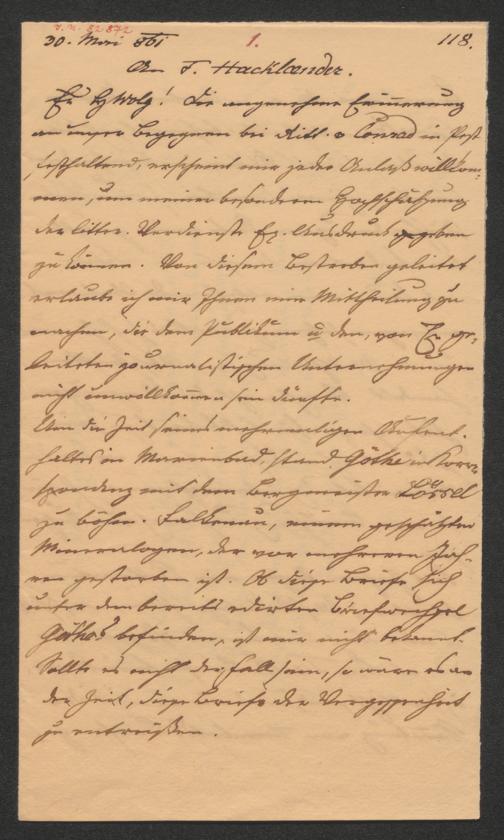 J. N. 82872
30. Mai 861 1. 118.
An F. Hackländer.
Er HWolg! Die angenehme Erinnerung
an unser Begegnen bei Ritt. v Conrad in Pest
festhaltend, erscheint mir jeder Anlaß willkom-
men, um meiner besonderen Hochschätzung
der litter. Verdienste Er. Ausdruck gegeben
zu können. Von diesem Bestreben geleitet
erlaube ich mir Ihnen eine Mittheilung zu
machen, die dem Publikum u den, von Er ge-
leiteten journalistischen Unternehmungen
nicht unwillkommen sein dürfte.
Um die Zeit seines mehrmaligen Aufent-
haltes in Marienbad, stand Göthe in Korre-
spondenz mit dem Bergmeister Lössel
zu böhm. Falkenau, einem geschätzten
Mineralogen, der vor mehreren Jah-
ren gestorben ist. Ob diese Briefe sich
unter dem bereits edirten Briefwechsel
Göthes befinden, ist mir nicht bekannt.
Sollte es nicht der Fall sein, so wäre es an
der Zeit, diese Briefe der Vergessenheit
zu entreißen.